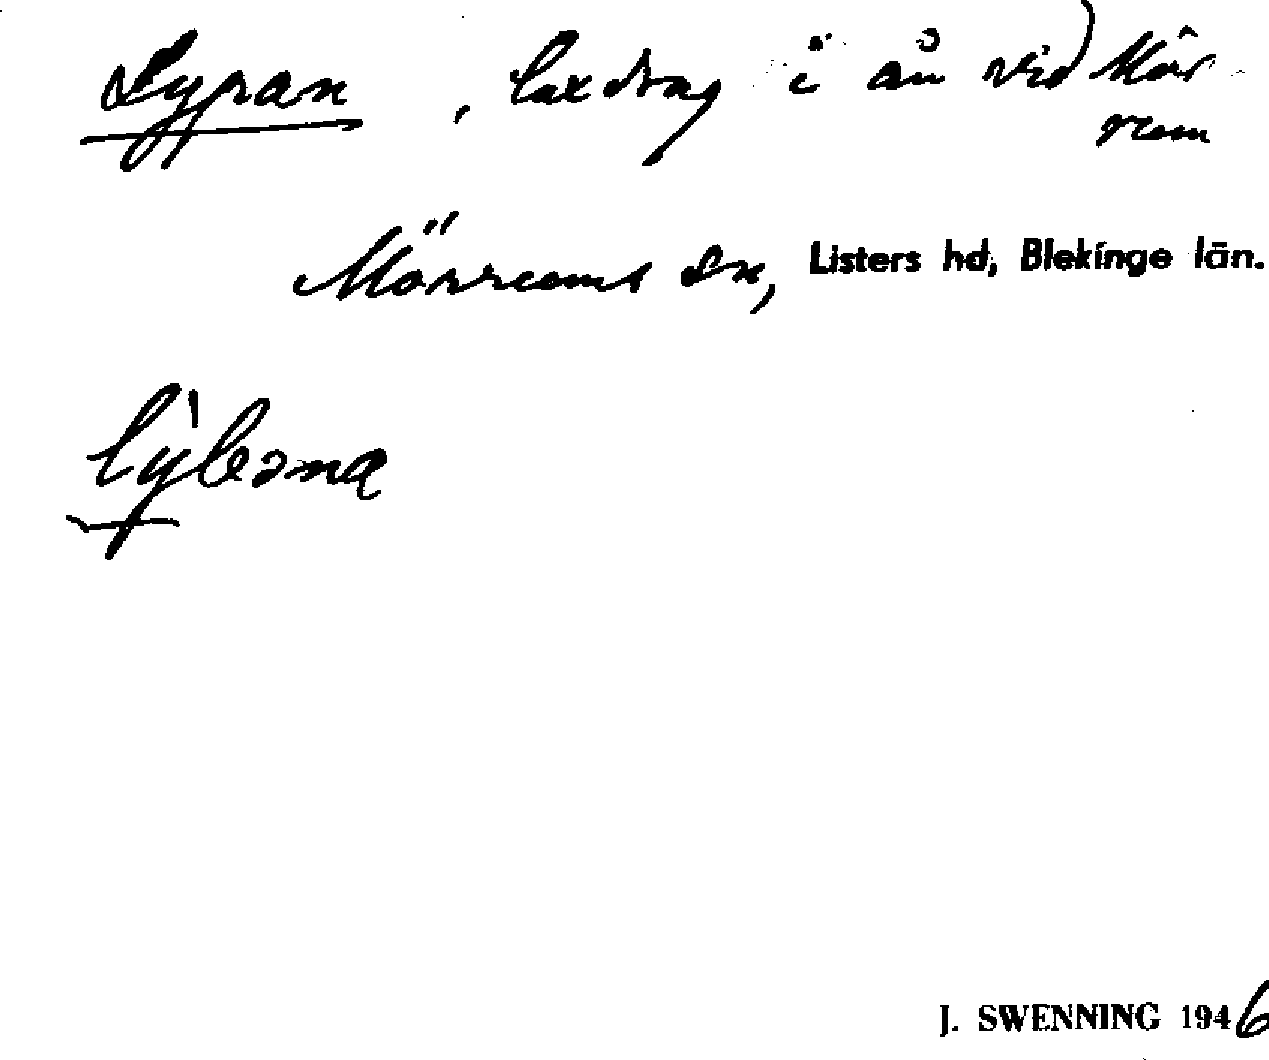 Lypan, laxdrag i ån vid Mör
rum
Mörrums sn, Listers hd, Blekinge län.
J. SWENNING 1946